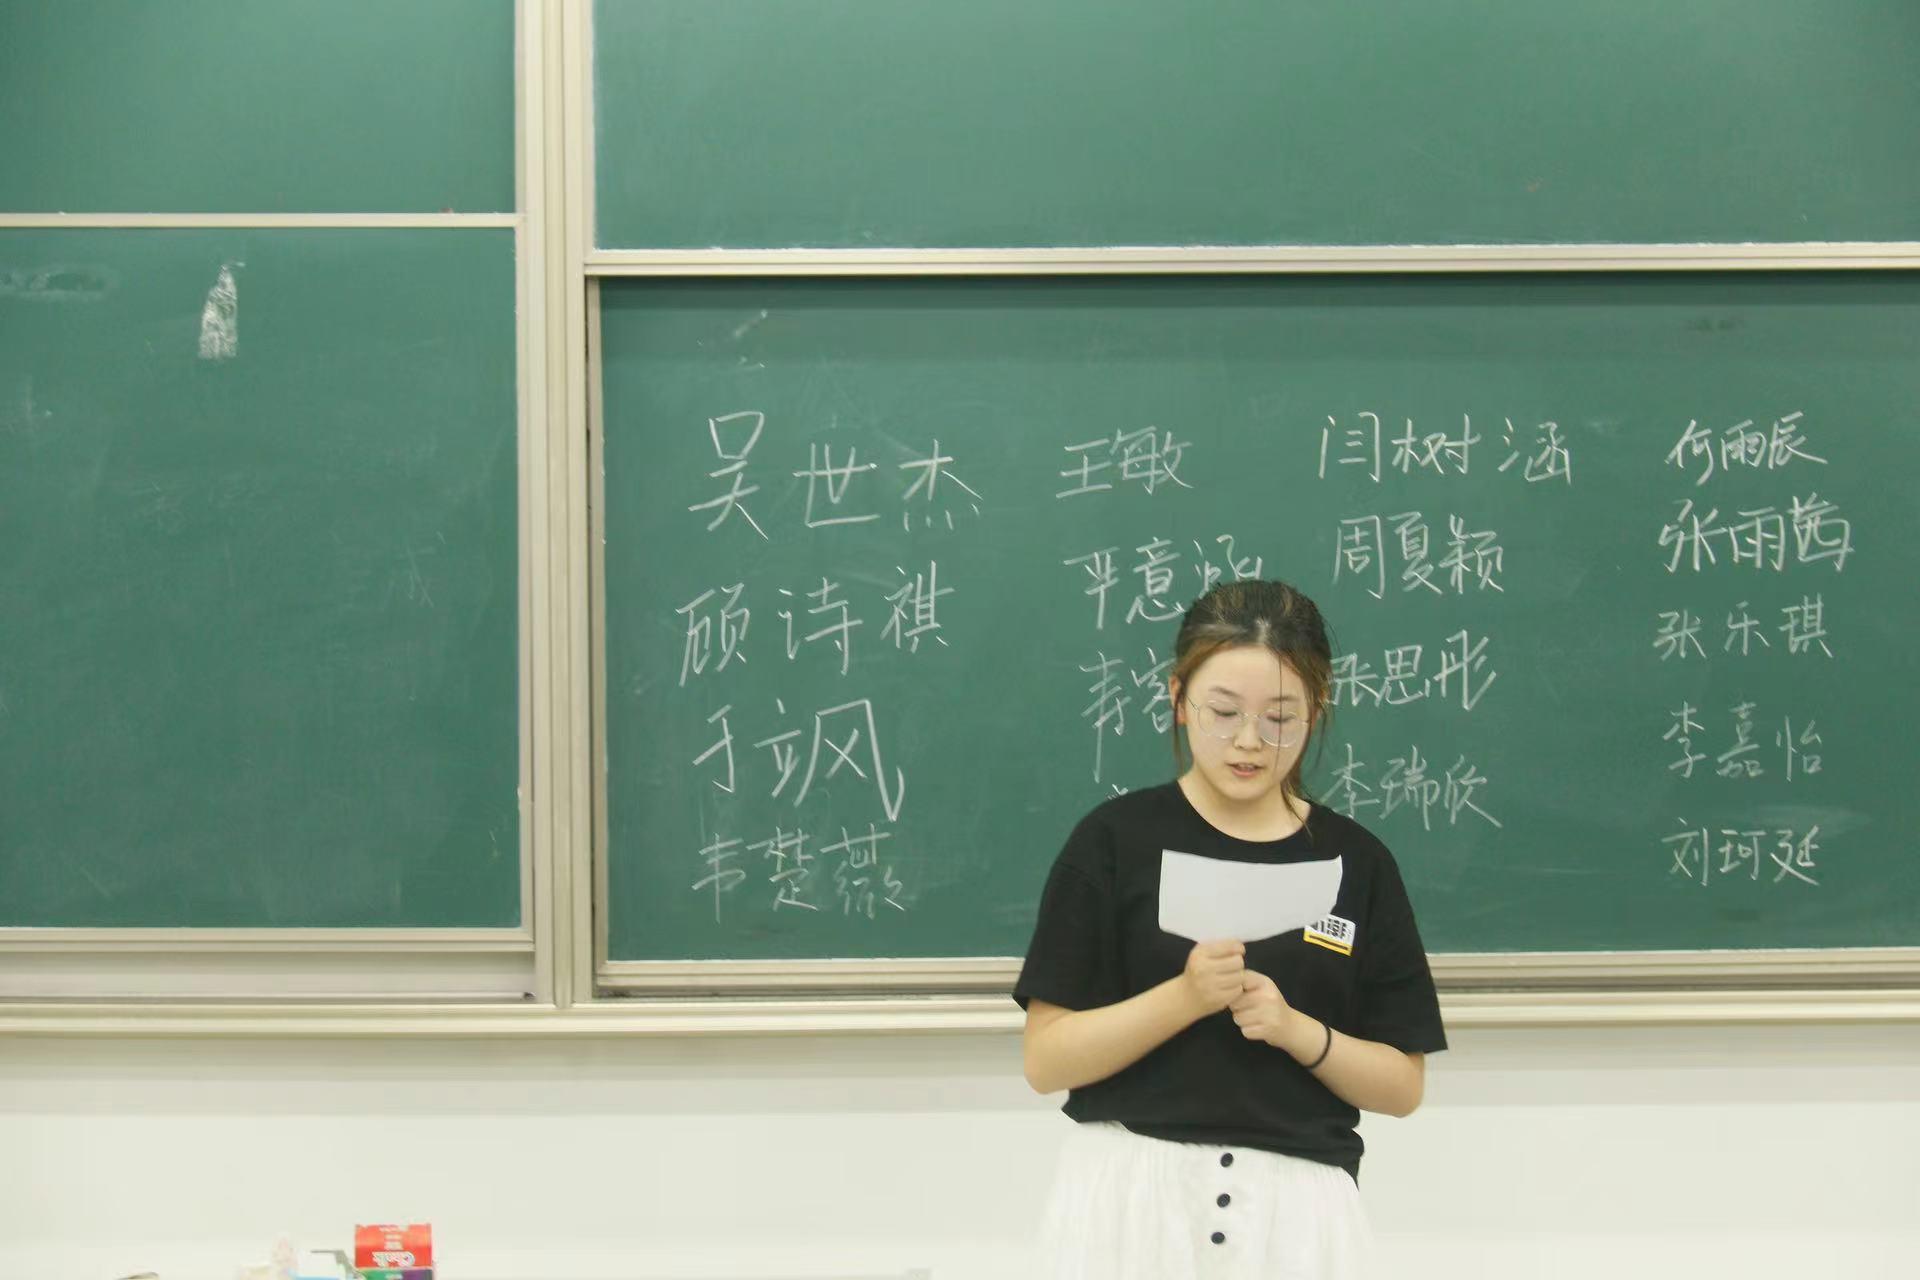 吴世杰
顾诗祺
于飒
韦楚薇
王敏
严意涵
李客
闫树涵
周夏颖
张思彤
李瑞欣
何雨辰
张雨茜
张乐琪
李嘉怡
刘珂延